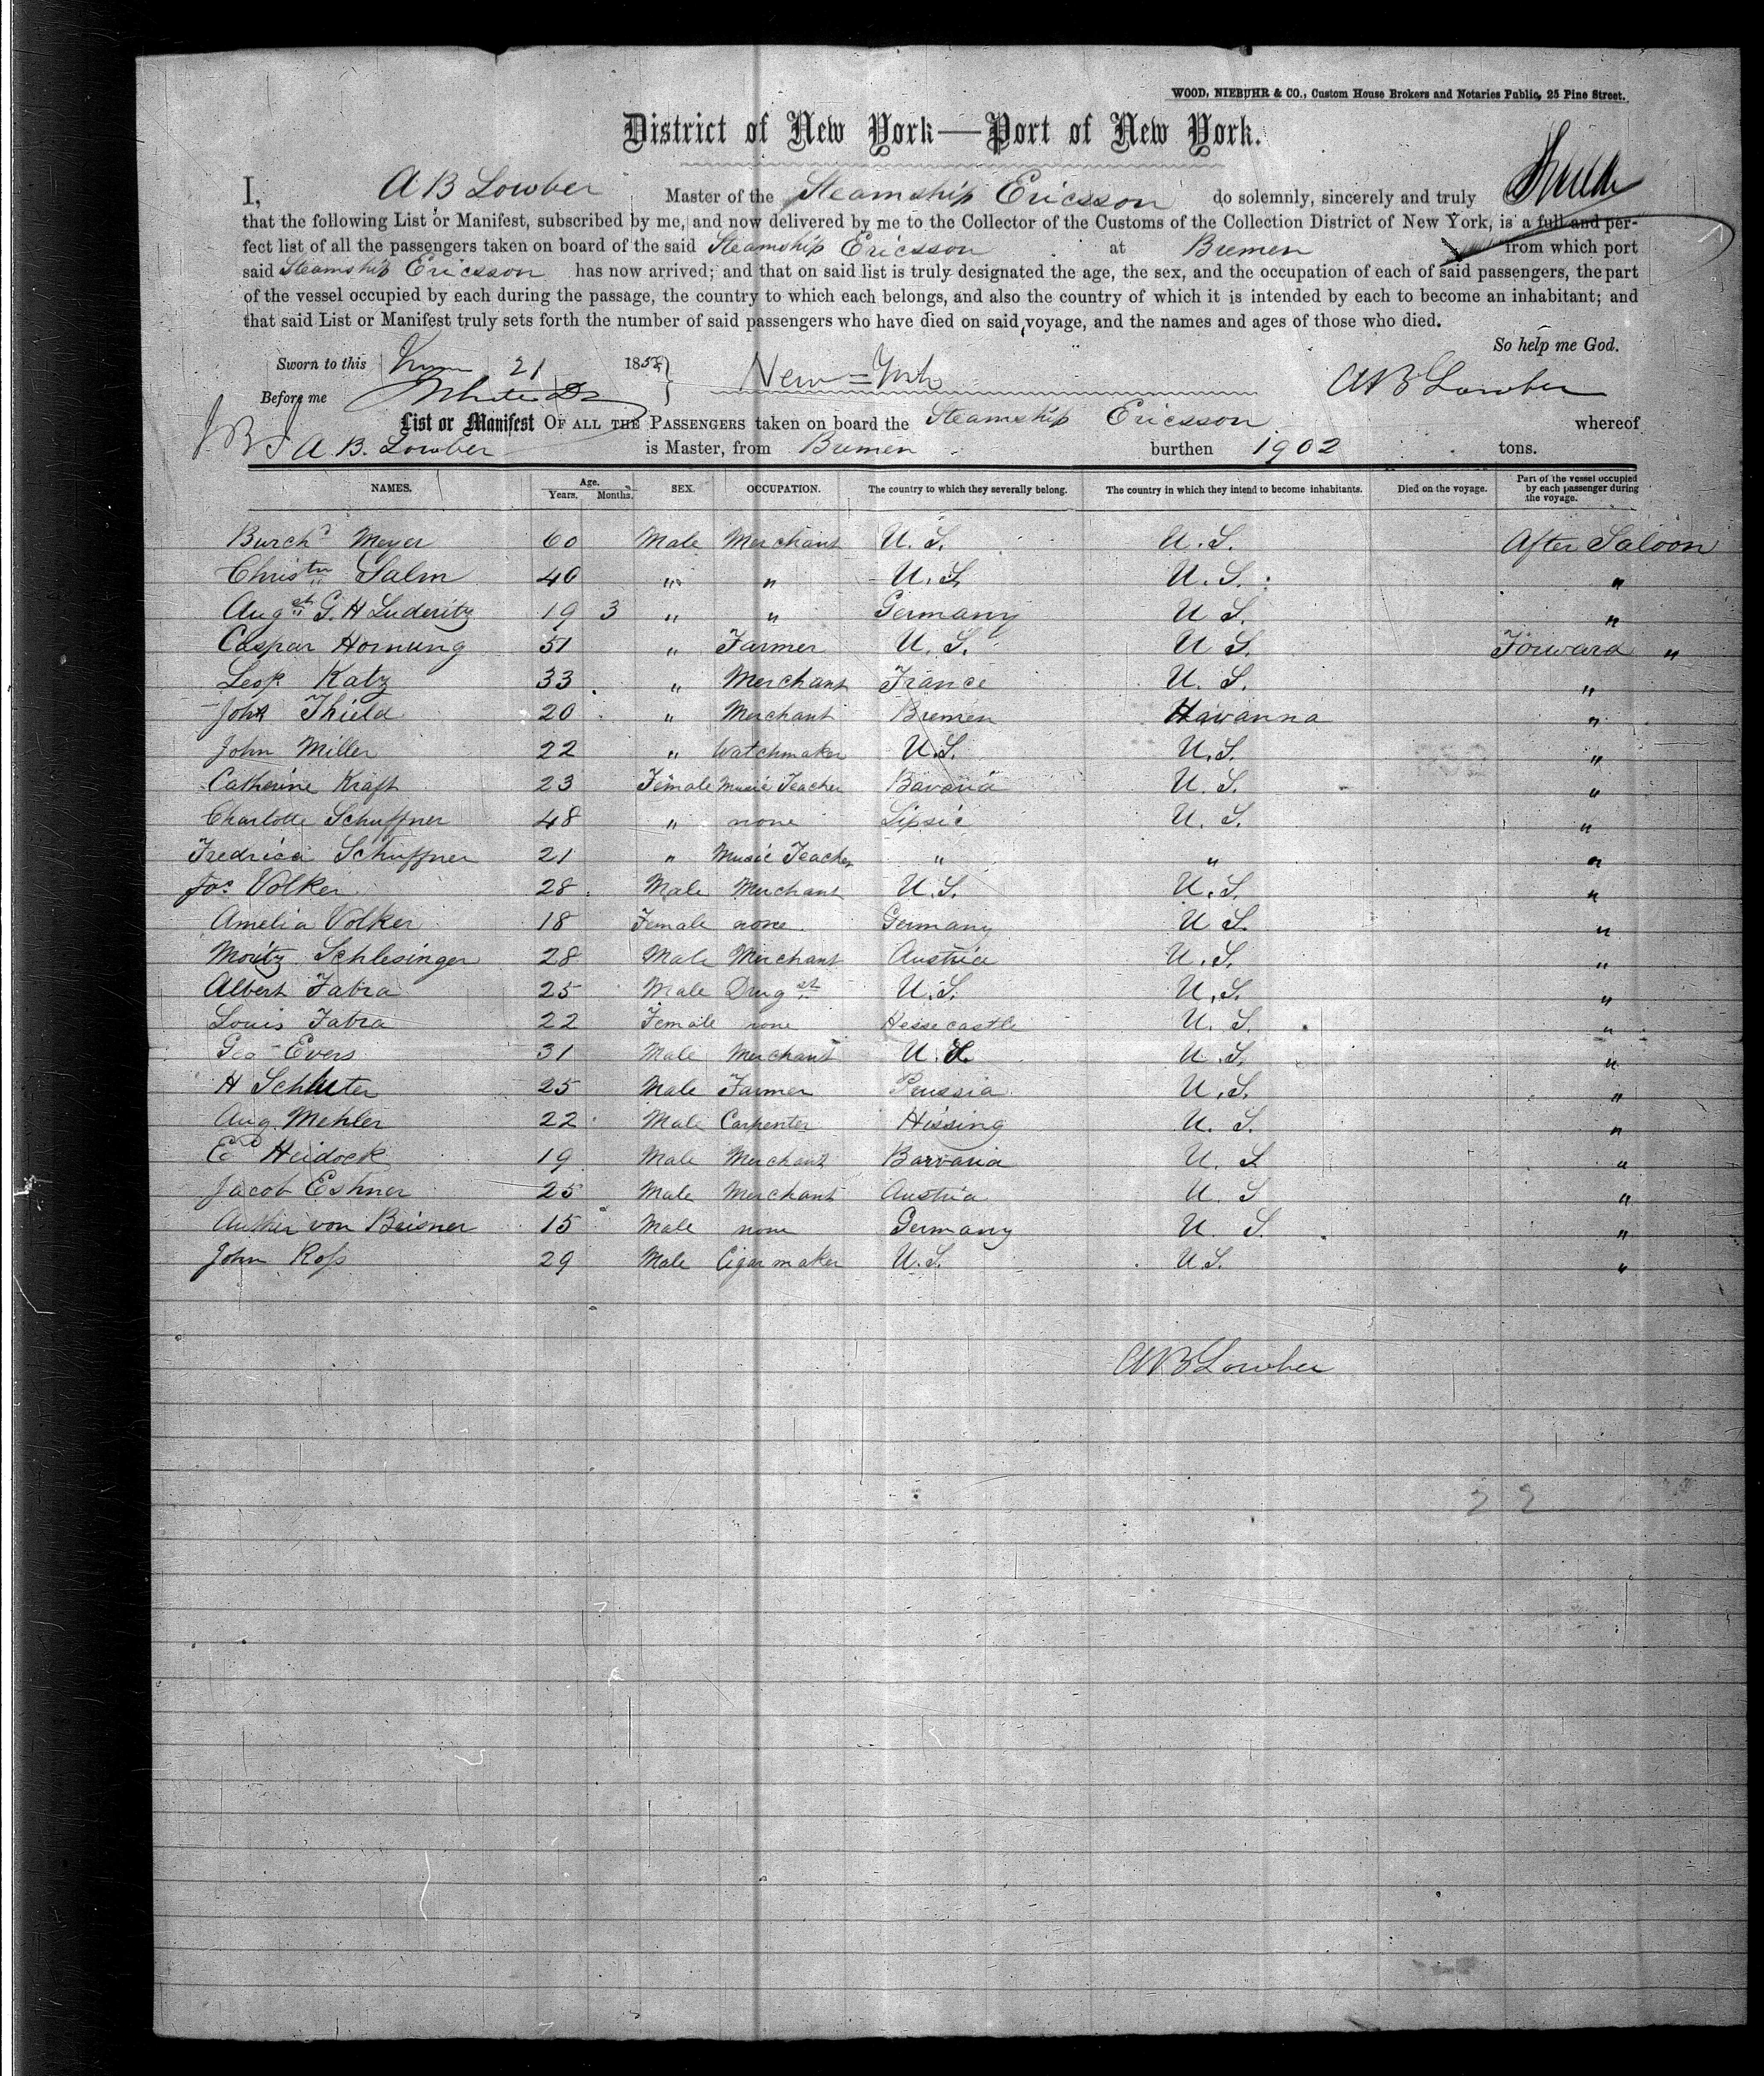 WOOD, NIEBUHR & CO., Custom House Brokers and Notaries Public, 25 Pine Street.
District of New York—Port of New York.
I, A B Lowber Master of the Steamship Ericsson do solemnly, sincerely and truly
that the following List or Manifest, subscribed by me, and now delivered by me to the Collector of the Customs of the Collection District of New York, is a full and per-
fect list of all the passengers taken on board of the said Steamship Ericsson at Bremen from which port
said Steamship Ericsson has now arrived; and that on said list is truly designated the age, the sex, and the occupation of each of said passengers, the part
of the vessel occupied by each during the passage, the country to which each belongs, and also the country of which it is intended by each to become an inhabitant; and
that said List or Manifest truly sets forth the number of said passengers who have died on said voyage, and the names and ages of those who died.
So help me God.
Sworn to this 21 185 New=York A B Lowber
Before me
List or Manifest OF ALL THE PASSENGERS taken on board the Steamship Ericsson whereof
A. B. Lowber is Master, from Bremen burthen 1902 tons.
NAMES. Age. Years. Months. SEX. OCCUPATION. The country to which they severally belong. The country in which they intend to become inhabitants. Died on the voyage. Part of the vessel occupied by each passenger during the voyage.
Burchd Meyer 60 Male Merchant U. S. U. S. After Saloon
Christn Salm 40 " " U. S. U. S. "
Augst G. H Luderitz 19 3 " " Germany U S. "
Caspar Hornung 51 " Farmer U. S. U S. Forward "
Leop Katz 33 " Merchant France U. S. "
John Thield 20 " Merchant Bremen Havanna "
John Miller 22 " Watchmaker U. S. U. S. "
Catherine Kraft 23 Female Music Teacher Bavaria U. S. "
Charlotte Schuffner 48 " none Lipsic U. S. "
Fredrica Schuffner 21 " Music Teacher " " "
Jos Volker 28 Male Merchant U. S. U. S. "
Amelia Volker 18 Female none Germany U S. "
Moritz Schlesinger 28 Male Merchant Austria U. S. "
Albert Fabra 25 Male Drugst U. S. U. S. "
Louis Fabra 22 Female none Hessecastle U. S. "
Geo Evers 31 Male Merchant U. S. U. S. "
H Schluter 25 Male Farmer Prussia U. S. "
Aug. Mehler 22 Male Carpenter Hissing U. S. "
Ed Heidock 19 Male Merchant Barvaria U. S "
Jacob Eshner 25 Male Merchant Austria U. S "
Auther von Beisner 15 Male none Germany U. S. "
John Ross 29 Male Cigar maker U. S. U S. "
A B Lowber
22